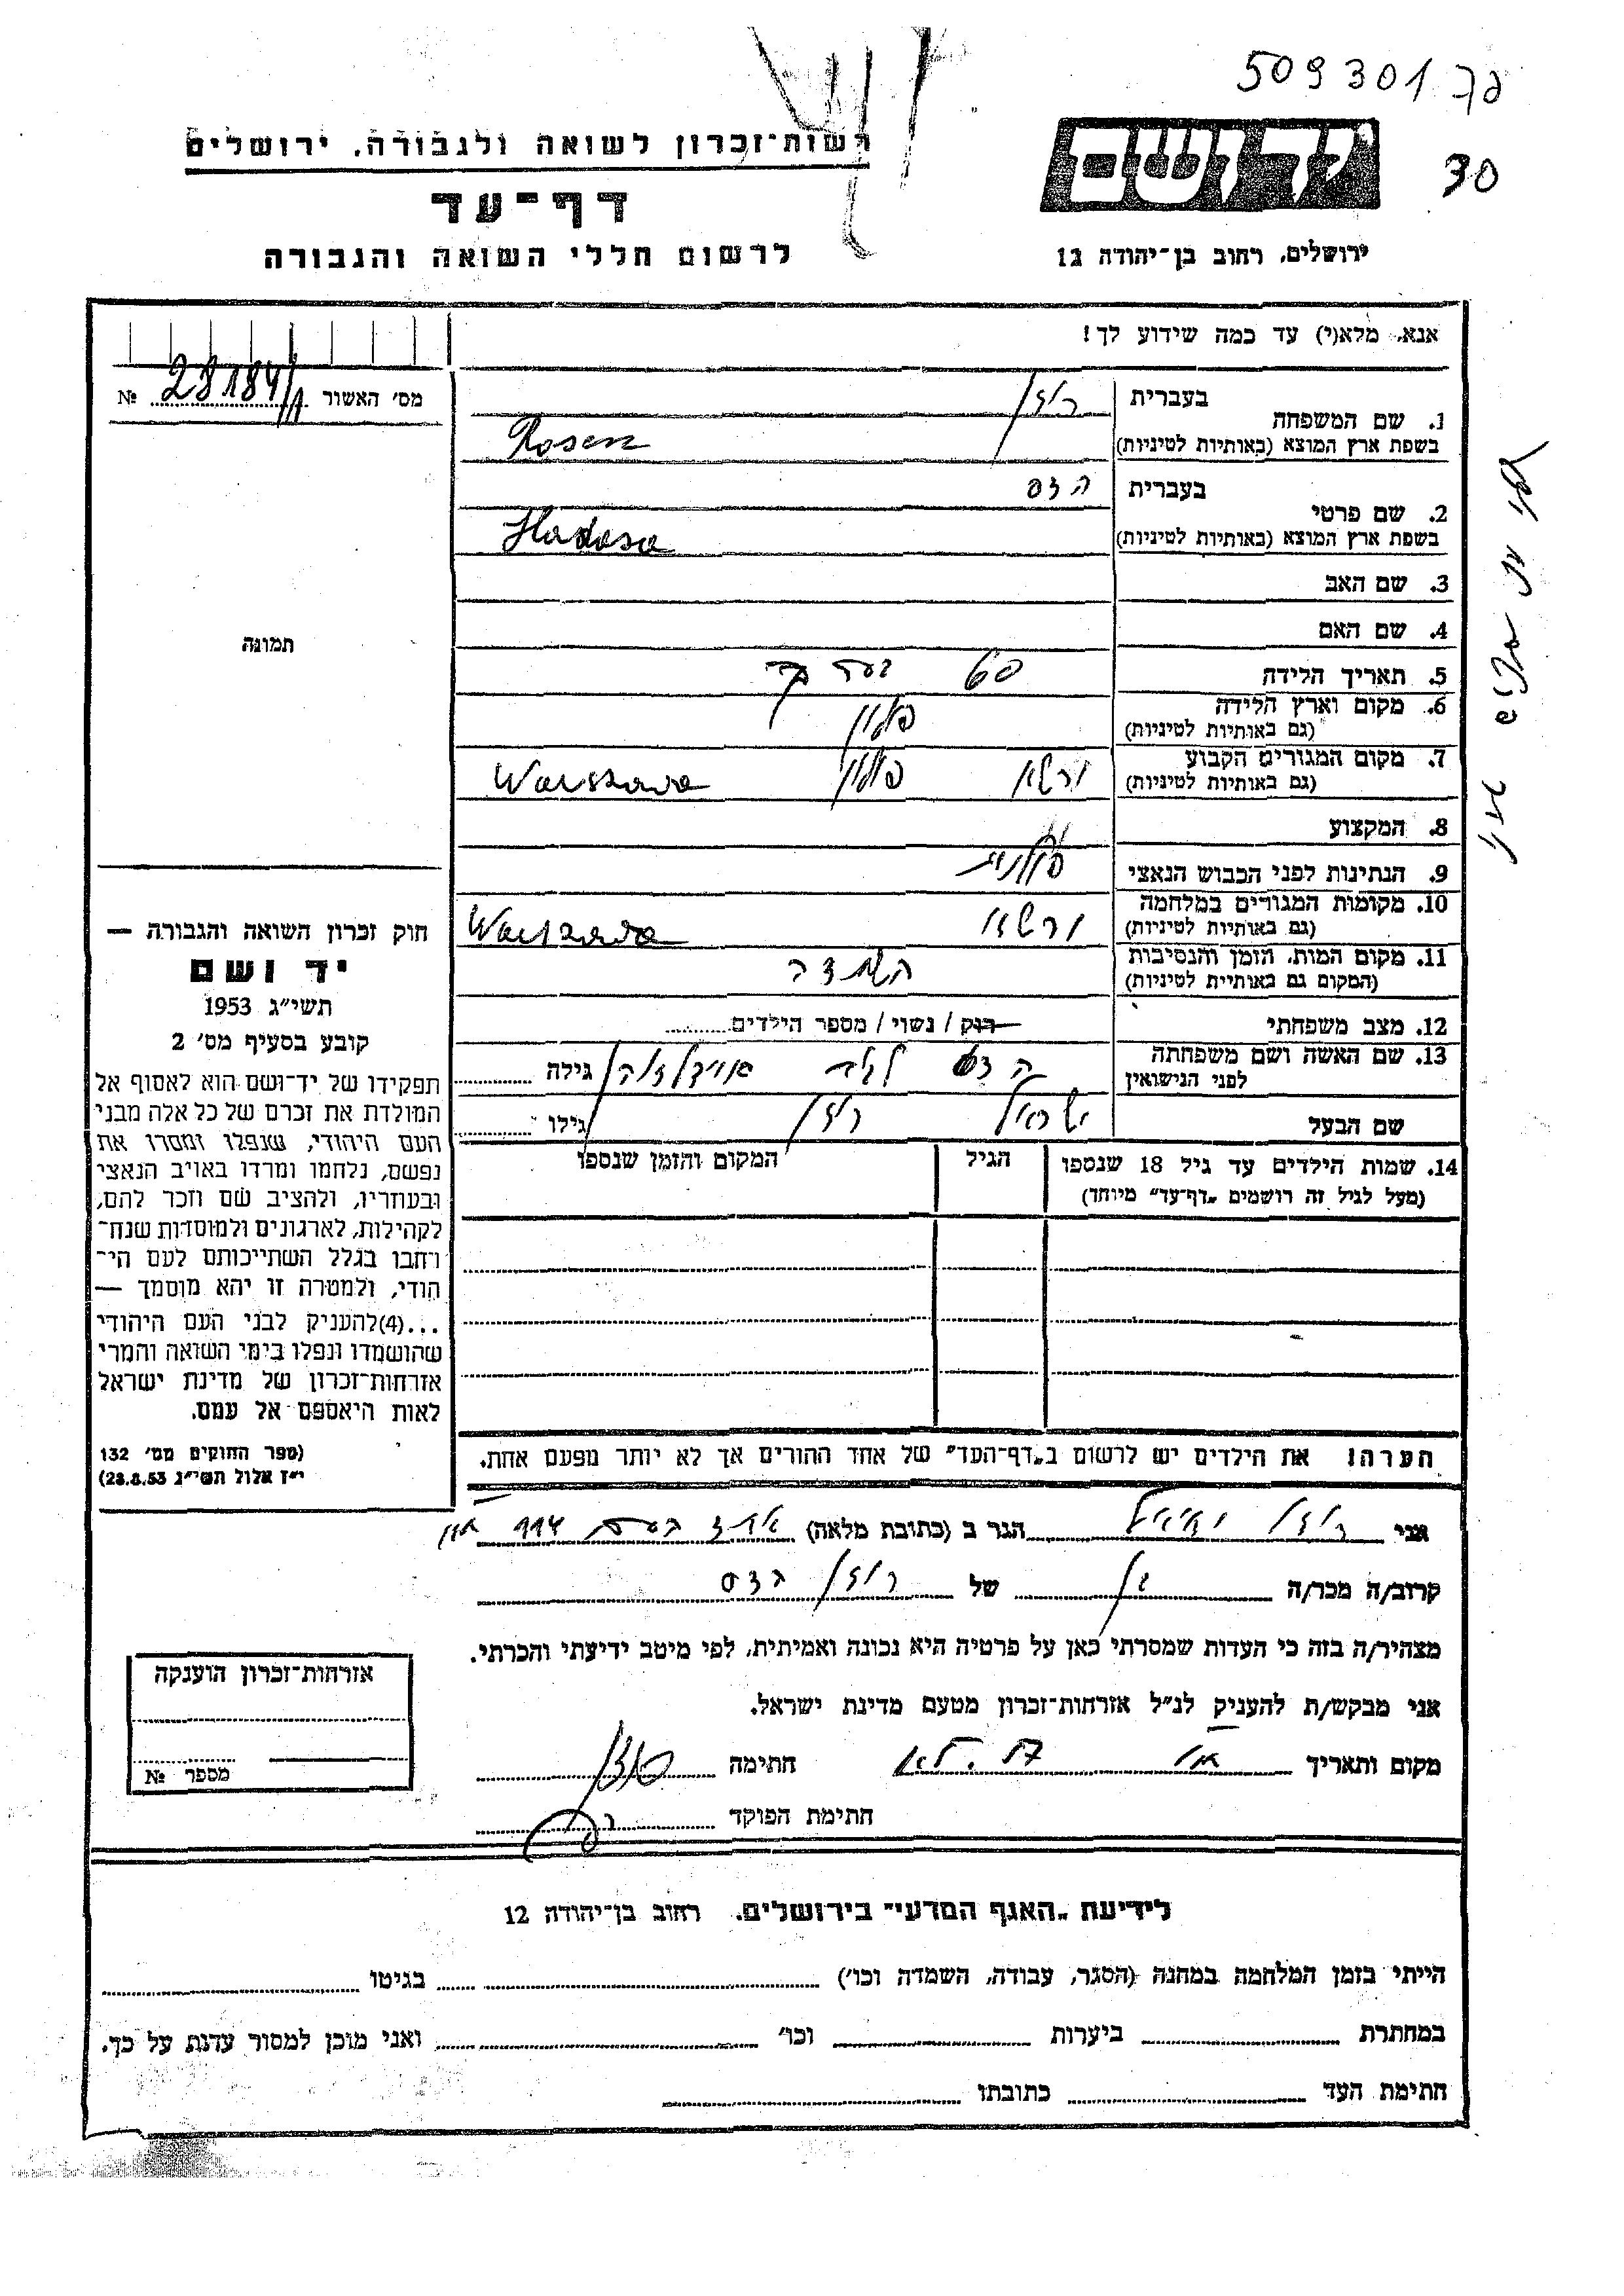 509301 דף
30
יד ושם
ירושלים, רחוב בן־יהודה 12
רשות־זכרון לשואה ולגבורה, ירושלים
דף־עד
לרשום חללי השואה והגבורה
אנא, מלא(י) עד כמה שידוע לך!
מס׳ האשור № 28184/
1. שם המשפחה בעברית רוזן
בשפת ארץ המוצא (באותיות לטיניות) Rosen
2. שם פרטי בעברית הדס
בשפת ארץ המוצא (באותיות לטיניות) Hadasa
3. שם האב
4. שם האם
5. תאריך הלידה בערך
6. מקום וארץ הלידה פולין
(גם באותיות לטיניות)
7. מקום המגורים הקבוע ורשא פולין Warszawa
(גם באותיות לטיניות)
8. המקצוע
9. הנתינות לפני הכבוש הנאצי פולנית
10. מקומות המגורים במלחמה ורשא Warszawa
(גם באותיות לטיניות)
11. מקום המות, הזמן והנסיבות השמדה
(המקום גם באותיות לטיניות)
12. מצב משפחתי רוק / נשוי / מספר הילדים
13. שם האשה ושם משפחתה לפני הנישואין הדס לבית גילה
שם הבעל ישראל רוזן גילו
14. שמות הילדים עד גיל 18 שנספו הגיל המקום והזמן שנספו
(מעל לגיל זה רושמים „דף־עד״ מיוחד)
הערה! את הילדים יש לרשום ב„דף־העד״ של אחד ההורים אך לא יותר מפעם אחת.
תמונה
חוק זכרון השואה והגבורה —
יד ושם
תשי״ג 1953
קובע בסעיף מס׳ 2
תפקידו של יד־ושם הוא לאסוף אל
המולדת את זכרם של כל אלה מבני
העם היהודי, שנפלו ומסרו את
נפשם, נלחמו ומרדו באויב הנאצי
ובעוזריו, ולהציב שם וזכר להם,
לקהילות, לארגונים ולמוסדות שנח־
רחבו בגלל השתייכותם לעם הי־
הודי, ולמטרה זו יהא מוסמך —
...(4)להעניק לבני העם היהודי
שהושמדו ונפלו בימי השואה והמרי
אזרחות־זכרון של מדינת ישראל
לאות היאספם אל עמם.
(ספר החוקים מס׳ 132
י״ז אלול תשי״ג 28.8.53)
אני רוזן יחיאל הגר ב (כתובת מלאה)
קרוב/ה מכר/ה בן של רוזן הדס
מצהיר/ה בזה כי העדות שמסרתי כאן על פרטיה היא נכונה ואמיתית, לפי מיטב ידיעתי והכרתי.
אני מבקש/ת להעניק לנ״ל אזרחות־זכרון מטעם מדינת ישראל.
מקום ותאריך חתימה
חתימת הפוקד
אזרחות־זכרון הוענקה
מספר №
לידיעת „האגף המדעי״ בירושלים, רחוב בן־יהודה 12
הייתי בזמן המלחמה במחנה (הסגר, עבודה, השמדה וכו׳) בגיטו
במחתרת ביערות וכו׳ ואני מוכן למסור עדות על כך.
חתימת העד כתובתו